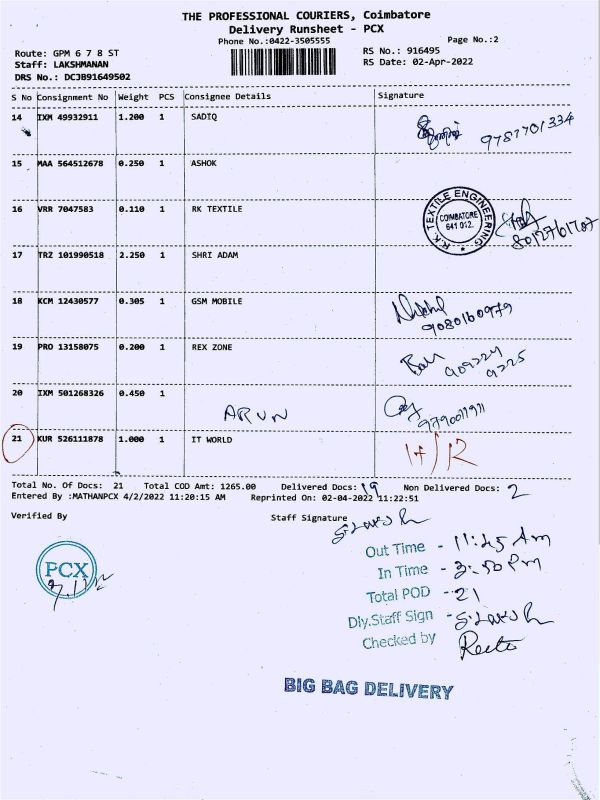 THE PROFESSIONAL COURIERS, Coimbatore
Delivery Runsheet - PCX
Phone No.:0422-3505555
Page No.:2
Route: GPM 6 7 8 ST
RS No.: 916495
Staff: LAKSHMANAN
RS Date: 02-Apr-2022
DRS No.: DCJB91649502
S No Consignment No Weight PCS Consignee Details Signature
14 IXM 49932911 1.200 1 SADIQ
9787701334
15 MAA 564512678 0.250 1 ASHOK
16 VRR 7047583 0.110 1 RK TEXTILE
R.K. TEXTILE ENGINEERING
COIMBATORE
641 012.
8012761707
17 TRZ 101990518 2.250 1 SHRI ADAM
18 KCM 12430577 0.305 1 GSM MOBILE
9080160979
19 PRO 13158075 0.200 1 REX ZONE
20 IXM 501268326 0.450 1
ARUN
9790011911
21 KUR 526111878 1.000 1 IT WORLD
Total No. Of Docs: 21 Total COD Amt: 1265.00 Delivered Docs: 19 Non Delivered Docs: 2
Entered By :MATHANPCX 4/2/2022 11:20:15 AM Reprinted On: 02-04-2022 11:22:51
Verified By
Staff Signature
PCX
Out Time - 11:45 Am
In Time - 3:50 Pm
Total POD - 21
Dly.Staff Sign -
Checked by
BIG BAG DELIVERY